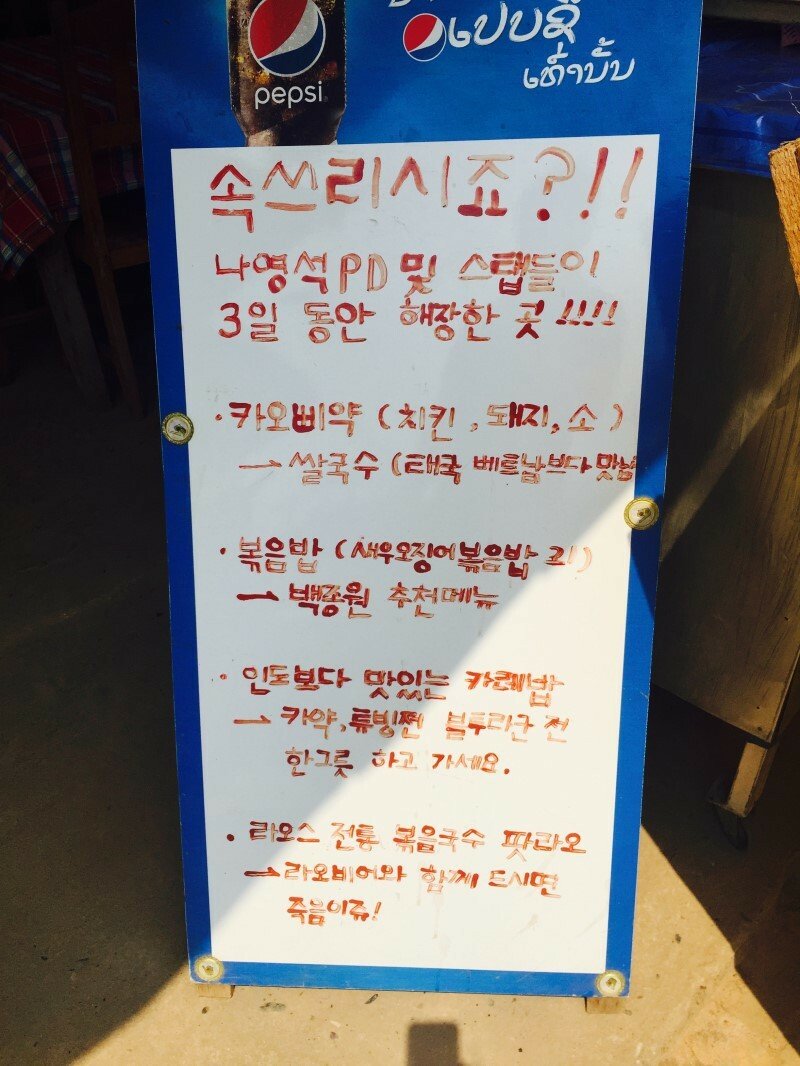 pepsi
ເປບຊີ
ເທົ່ານັ້ນ
속쓰리시죠?!!
나영석PD 및 스탭들이
3일 동안 해장한 곳!!!!
· 카오삐약 (치킨, 돼지, 소)
→ 쌀국수 (태국 베트남보다 맛남
· 볶음밥 (새우오징어볶음밥 a)
→ 백종원 추천메뉴
· 인도보다 맛있는 카레밥
→ 카약, 튜빙전 블루라군 전
한그릇 하고 가세요.
· 라오스 전통 볶음국수 팟라오
→ 라오비어와 함께 드시면
죽음이쥬!